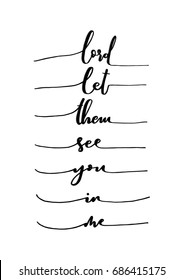 lord
let
them
see
you
in
me
shutterstock.com · 686415175